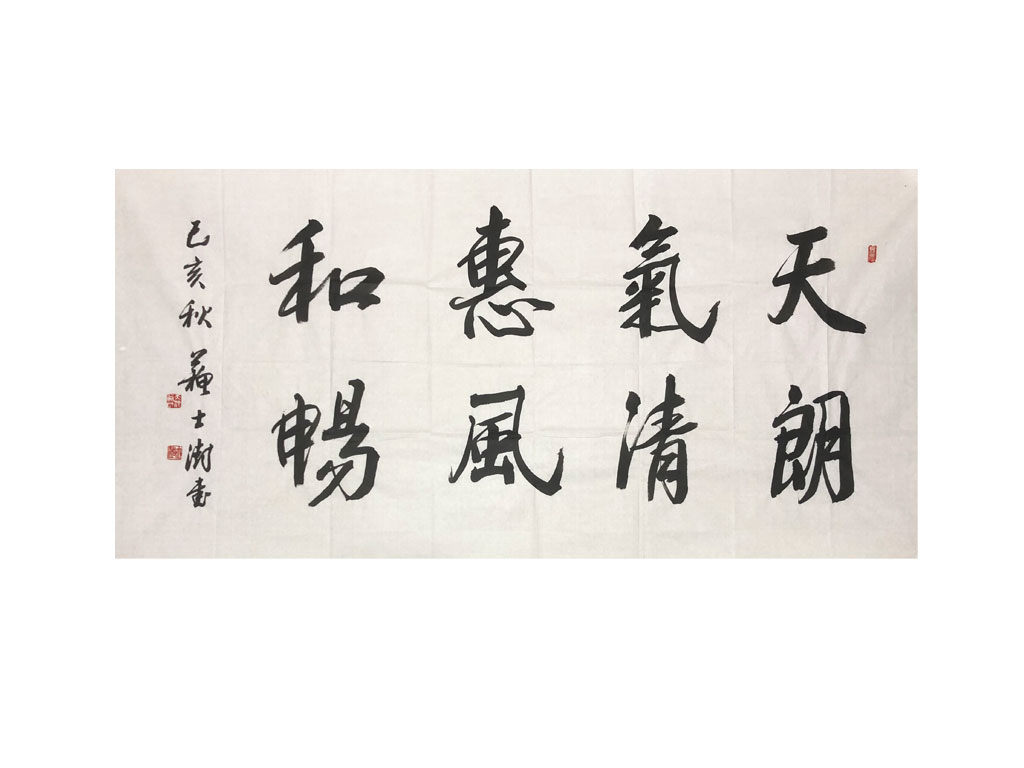 天朗
氣清
惠風
和暢
己亥秋蘇士澍書